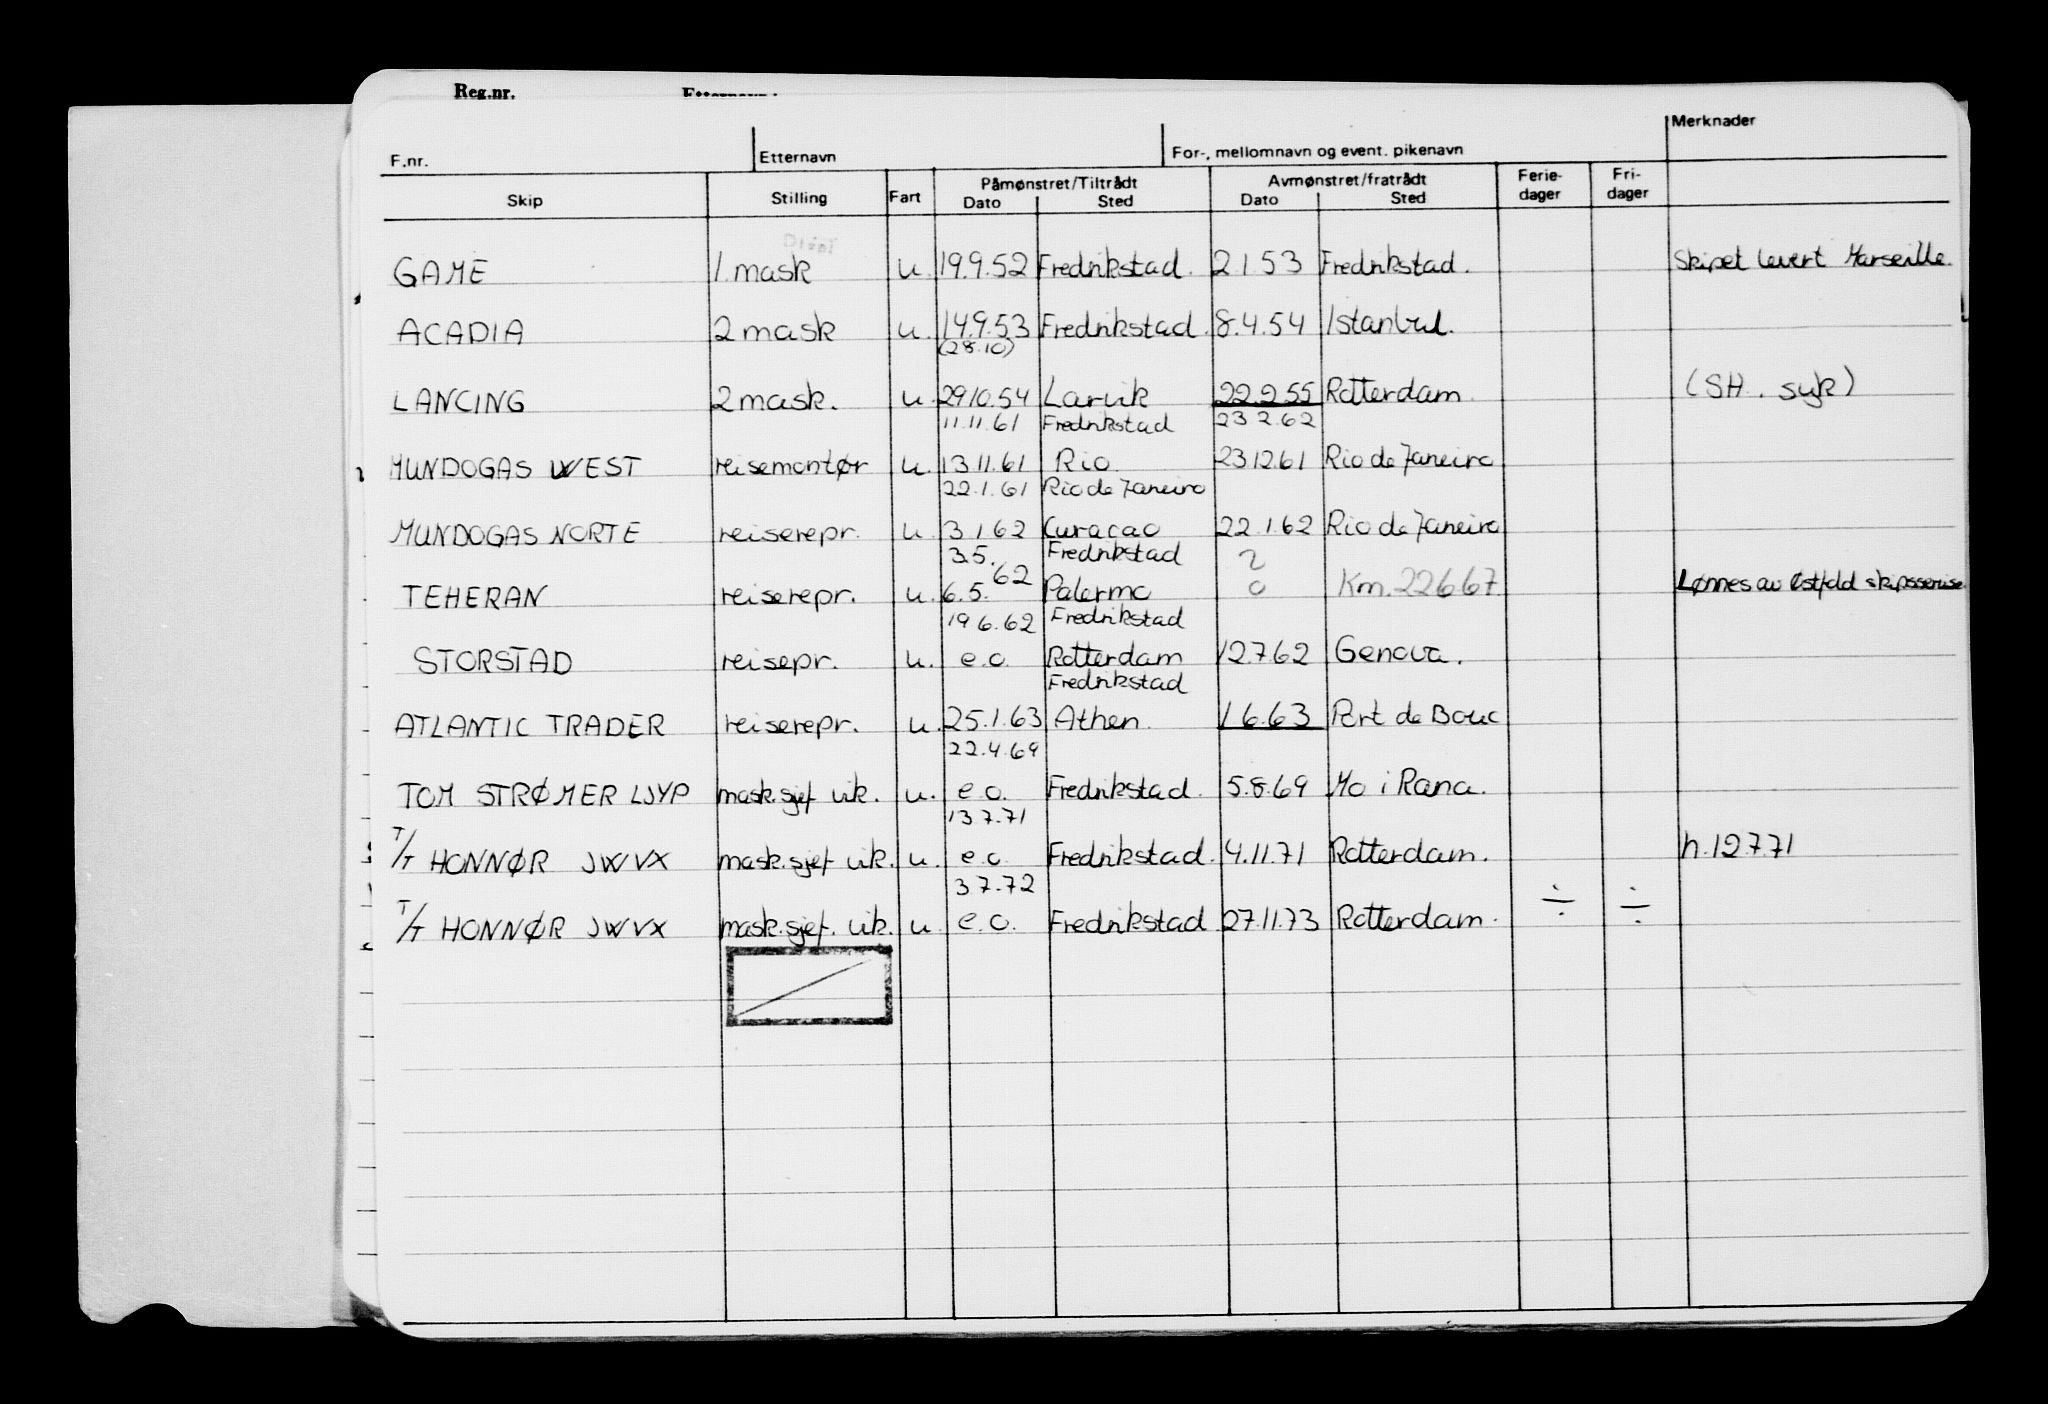 Reg.nr.
Merknader
F.nr. Etternavn For-, mellomnavn og event. pikenavn
Skip Stilling Fart Påmønstret/Tiltrådt Dato Sted Avmønstret/fratrådt Dato Sted Ferie-dager Fri-dager
GAME 1. mask u. 19.9.52 Fredrikstad. 2 1 53 Fredrikstad. Skipet levert Marseille.
ACADIA 2 mask u. 14.9.53 Fredrikstad. 8.4.54 Istanbul.
(28.10)
LANCING 2 mask. u. 29 10.54 Larvik 22 2 55 Rotterdam. (SH. syk)
11.11.61 Fredrikstad 23 2.62
MUNDOGAS WEST reisemontør u. 13.11.61 Rio. 23 12.61 Rio de Janeiro
22.1.61 Rio de Janeiro
MUNDOGAS NORTE reiserepr. u. 3 1 62 Curacao 22.1.62 Rio de Janeiro
3.5. Fredrikstad ?
TEHERAN reiserepr. u. 6.5. 62 Palermo o Km. 22667 Lønnes av Østfold
19 6.62 Fredrikstad
STORSTAD reisepr. u. e.o. Rotterdam 12.7.62 Genova.
Fredrikstad
ATLANTIC TRADER reiserepr. u. 25.1.63 Athen. 1 6.63 Port de Bouc
22.4.69
TOM STRØMER LJYP mask.sjef vik. u. e.o. Fredrikstad. 5.8.69 Mo i Rana.
13 7.71
T/T HONNØR JWVX mask.sjef vik. u. e.o Fredrikstad. 4.11.71 Rotterdam. h.12.7.71
3 7.72
T/T HONNØR JWVX mask.sjef. vik. u. e.o. Fredrikstad 27.11.73 Rotterdam. ÷ ÷